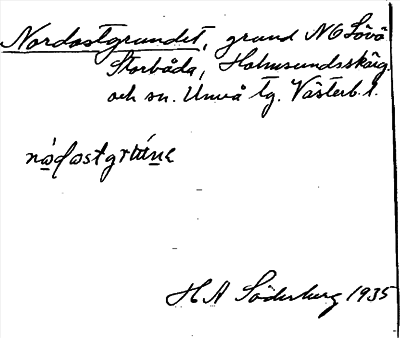 Nordostgrundet, grund NO Lövö
Storbåda, Holmsundsskärg.
och sn. Umeå tg. Västerb. l.
nó̠ḍostgrúńe
H A Söderberg 1935